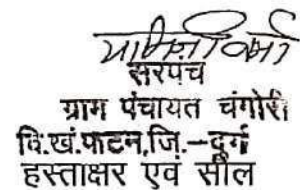 सरपंच
ग्राम पंचायत चंगोरी
वि.खं.पाटन,जि.-दुर्ग
हस्ताक्षर एवं सील